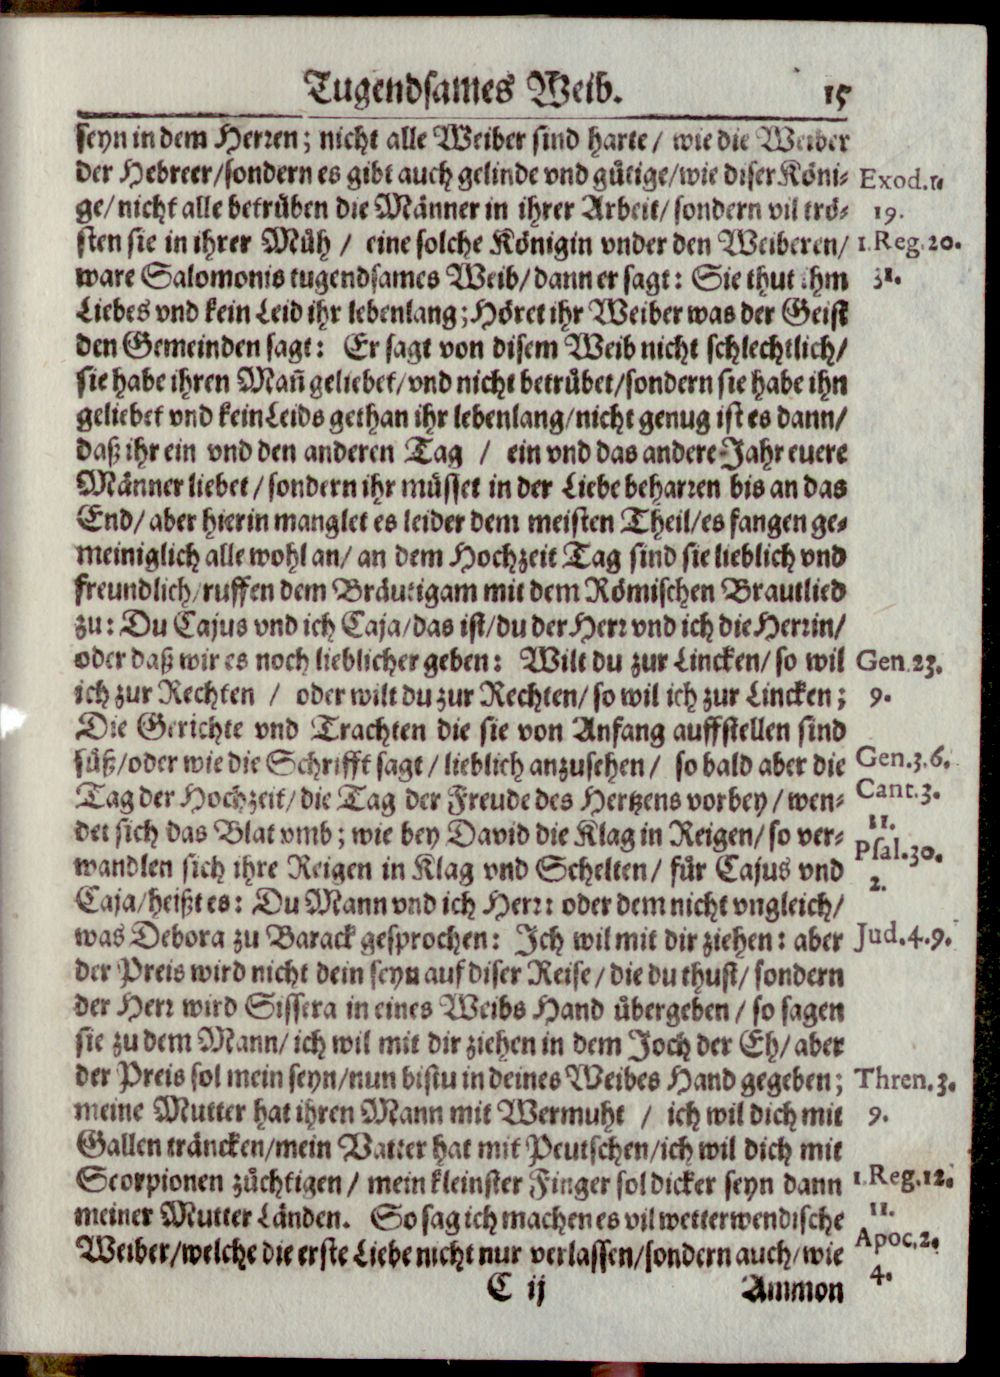 Tugendsames Weib. 15
seyn in dem Herren; nicht alle Weiber sind harte/ wie die Weiber
der Hebreer/sondern es gibt auch gelinde vnd gütige/wie diser Köni- Exod.1.
ge/ nicht alle betrüben die Männer in ihrer Arbeit/ sondern vil trö- 19.
sten sie in ihrer Müh / eine solche Königin vnder den Weiberen/ 1.Reg.20.
ware Salomonis tugendsames Weib/ dann er sagt: Sie thut ihm 31.
Liebes vnd kein Leid ihr lebenlang; Höret ihr Weiber was der Geist
den Gemeinden sagt: Er sagt von disem Weib nicht schlechtlich/
sie habe ihren Mañ geliebet/ vnd nicht betrübet/sondern sie habe ihn
geliebet vnd kein Leids gethan ihr lebenlang/nicht genug ist es dann/
daß ihr ein vnd den anderen Tag / ein vnd das andere Jahr euere
Männer liebet / sondern ihr müsset in der Liebe beharren bis an das
End/ aber hierin manglet es leider dem meisten Theil/es fangen ge-
meiniglich alle wohl an/ an dem Hochzeit Tag sind sie lieblich vnd
freundlich/ruffen dem Bräutigam mit dem Römischen Brautlied
zu: Du Cajus vnd ich Caja/das ist/du der Herr vnd ich die Herrin/
oder daß wir es noch lieblicher geben: Wilt du zur Lincken/ so wil Gen.23.
ich zur Rechten / oder wilt du zur Rechten/ so wil ich zur Lincken; 9.
Die Gerichte vnd Trachten die sie von Anfang auffstellen sind
süß/oder wie die Schrifft sagt / lieblich anzusehen / so bald aber die Gen.3.6.
Tag der Hochzeit/die Tag der Freude des Hertzens vorbey / wen- Cant.3.
det sich das Blat vmb; wie bey David die Klag in Reigen/ so ver- 11.
wandlen sich ihre Reigen in Klag vnd Schelten/ für Cajus vnd Psal.30.
2.
Caja/heißt es: Du Mann vnd ich Herr: oder dem nicht vngleich/
was Debora zu Barack gesprochen: Ich wil mit dir ziehen: aber Jud.4.9.
der Preis wird nicht dein seyn auf diser Reise / die du thust/ sondern
der Herr wird Sissera in eines Weibs Hand übergeben / so sagen
sie zu dem Mann/ ich wil mit dir ziehen in dem Joch der Eh/ aber
der Preis sol mein seyn/nun bistu in deines Weibes Hand gegeben; Thren.3.
meine Mutter hat ihren Mann mit Wermuht / ich wil dich mit 9.
Gallen träncken/mein Vatter hat mit Peutschen/ich wil dich mit
Scorpionen züchtigen / mein kleinster Finger sol dicker seyn dann 1.Reg.12.
meiner Mutter Länden. So sag ich machen es vil wetterwendische 11.
Weiber/welche die erste Liebe nicht nur verlassen/sondern auch/wie Apoc.2.
4.
C ij Ammon